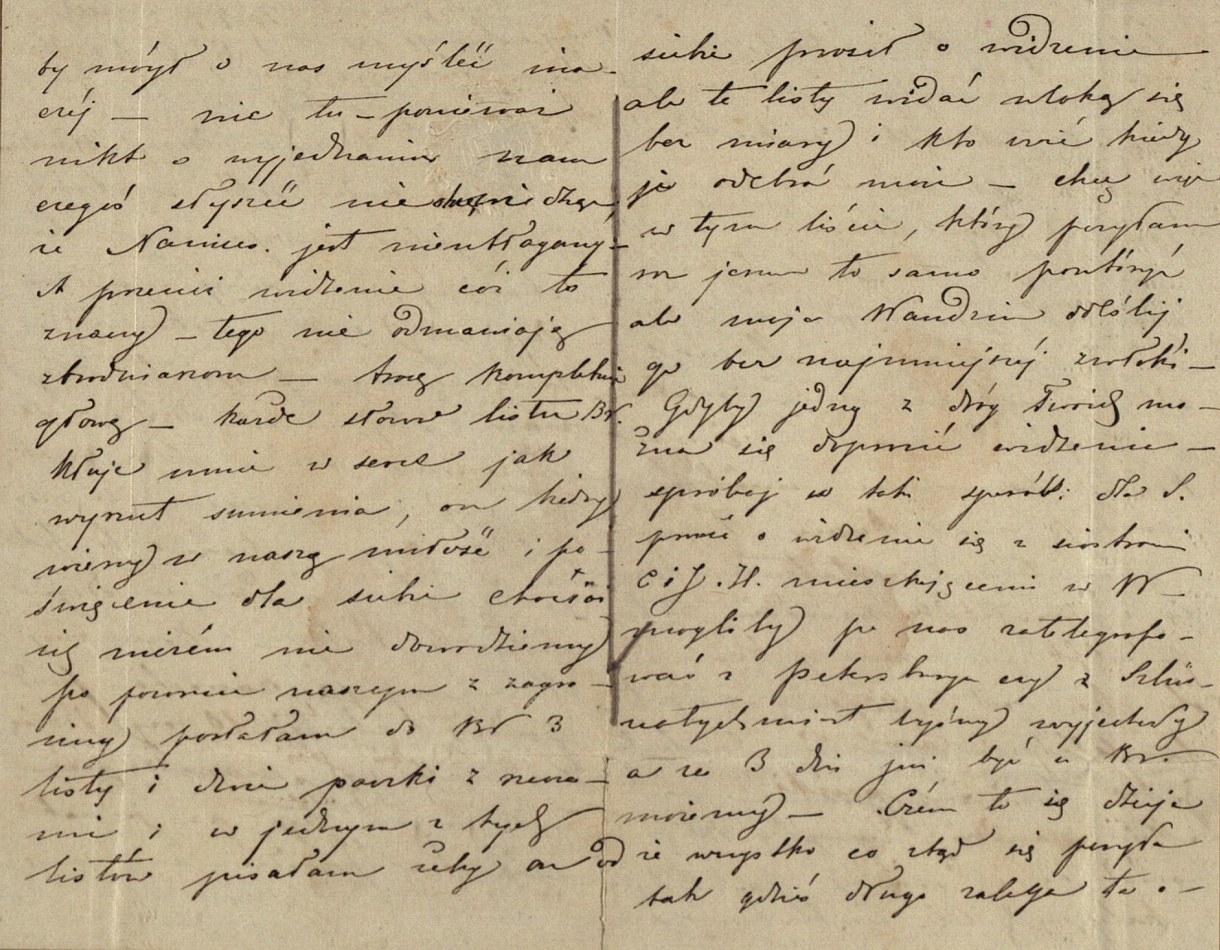 by mógł o nas myśléć ina-
czéj — nie tu — ponieważ
nikt o wyjednaniu nam
czegoś słyszéć nie chce
że Namies. jest nieubłagany —
A przecież widzenie cóż to
znaczy — tego nie odmawiają
zbrodniarzom — tracę kompletnie
głowę — każde słowo listu Br.
kłuje mnie w serce jak
wyrzut sumienia, on kiedy
wierzy w naszą miłość i po-
święcenie dla siebie chociaż
się niczém nie dowodziemy
po powrocie naszym z zagra-
nicy posłałam do Br 3
listy i dwie paczki z rzecza-
mi i w jednym z tych
listów pisałam żeby on od
siebie prosił o widzenie
ale te listy widać wloką się
bez miary i kto wié kiedy
je odebrać może — chcę więc
w tym liście, który posyłam
na jego to samo powtórzyć
ale moja Wandziu odeślij
go bez najmniejszéj zwłoki —
Gdyby jedną z dróg Twoich mo-
żna się dopros'ić widzenie —
spróbuj w taki sposób: dla S.
prosić o widzenie się z siostrami
C i J. H. mieszkającemi w W —
mogliby po nas zatelegrafo-
wać z Petersburga czy z Szlüs-
natychmiast byśmy wyjechały
a za 3 dni już być u Br.
możemy — Czém to się dzieje
że wszystko co ztąd się posyła
tak gdzieś długo zalega to o —